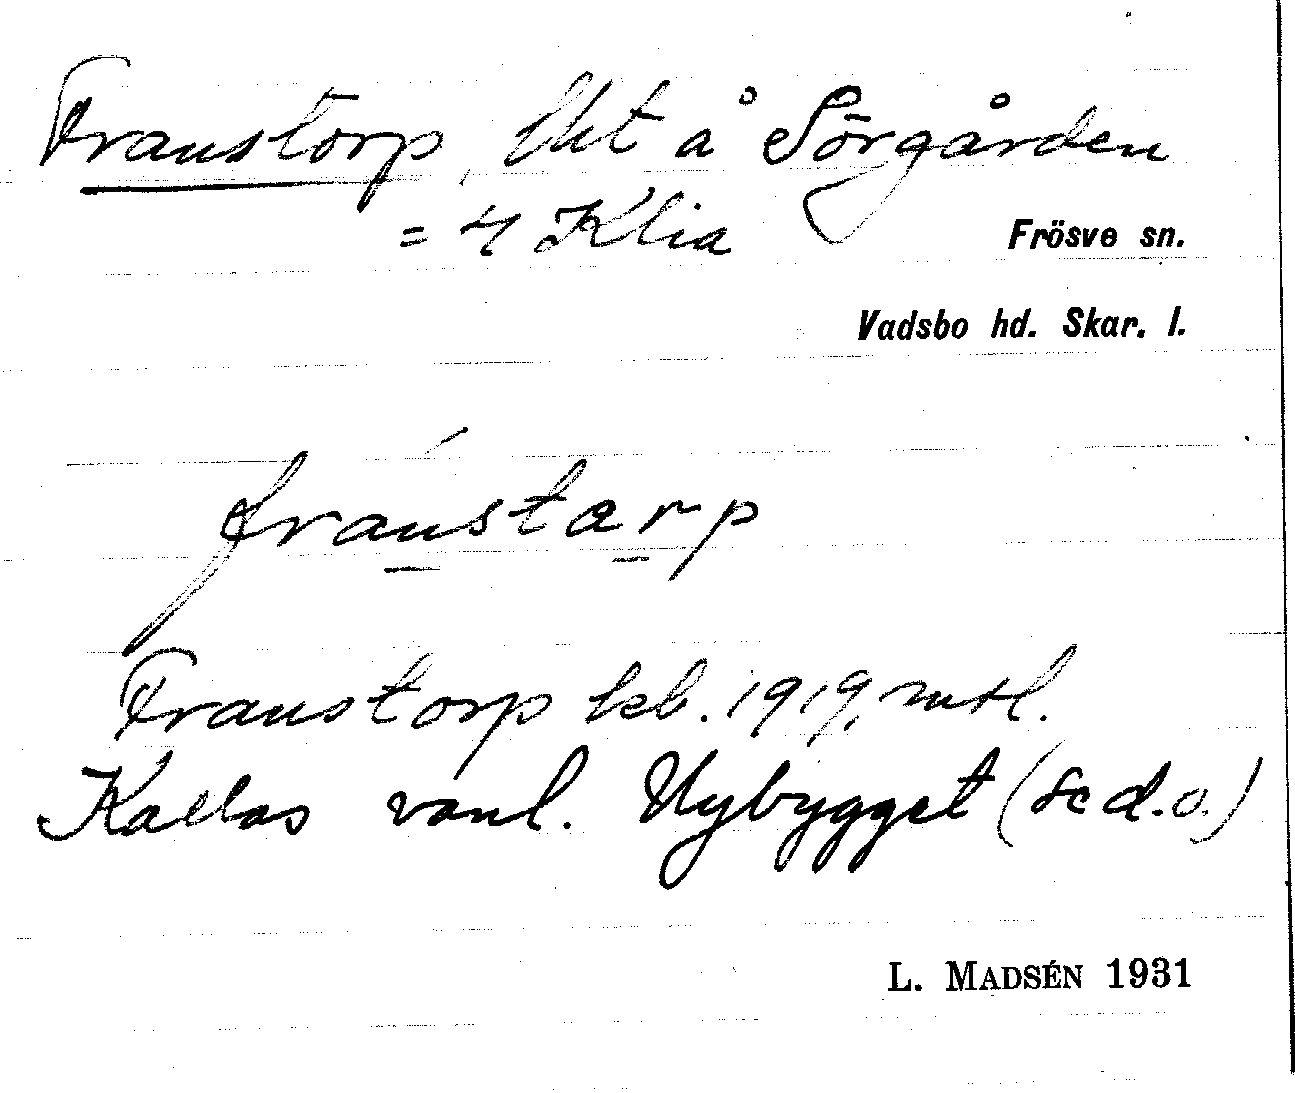 Franstorp, lht å Sörgården
= 4 Klia
Frösve sn.
Vadsbo hd. Skar. l.
fránstarp
Franstorp kb. 1919, mtl.
Kallas vanl. Nybygget (se d.o.)
L. MADSÉN 1931